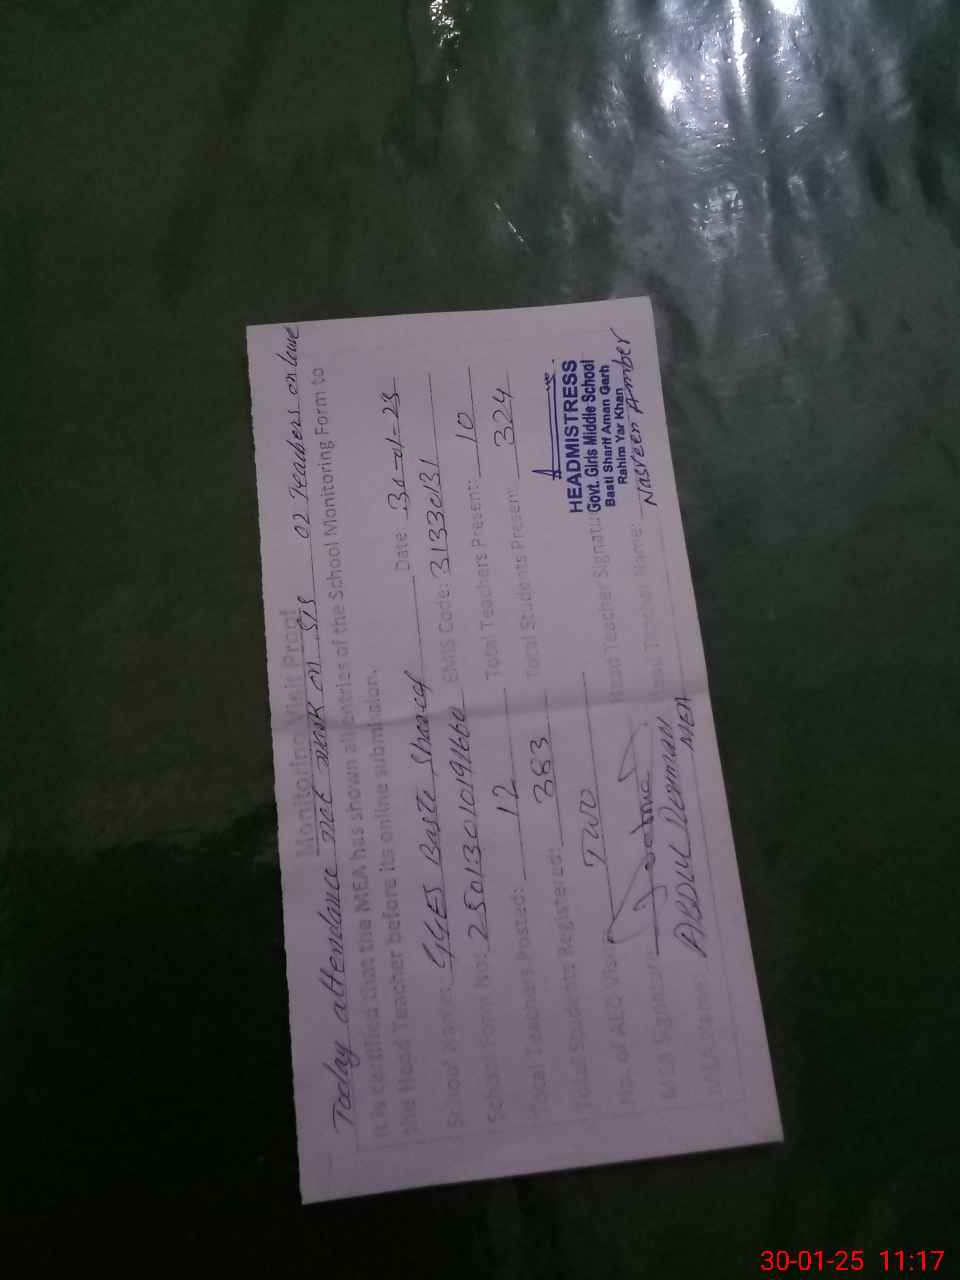 Today attendance not mark on SIS 02 Teachers on leave
Monitoring Visit Proof
It is certified that the MEA has shown all entries of the School Monitoring Form to
the Head Teacher before its online submission.
School Name: GGES Basti Shareef Date: 30-01-25
School Form No: EMIS Code: 31330131
Total Teachers Posted: 12 Total Teachers Present: 10
Total Students Registered: 383 Total Students Present: 324
No. of AEC Visit: TWO Head Teacher Signature
HEADMISTRESS
Govt. Girls Middle School
Basti Sharif Aman Garh
Rahim Yar Khan
MEA Signature: Head Teacher Name: Nasreen Amber
ABDUL MEA
30-01-25 11:17